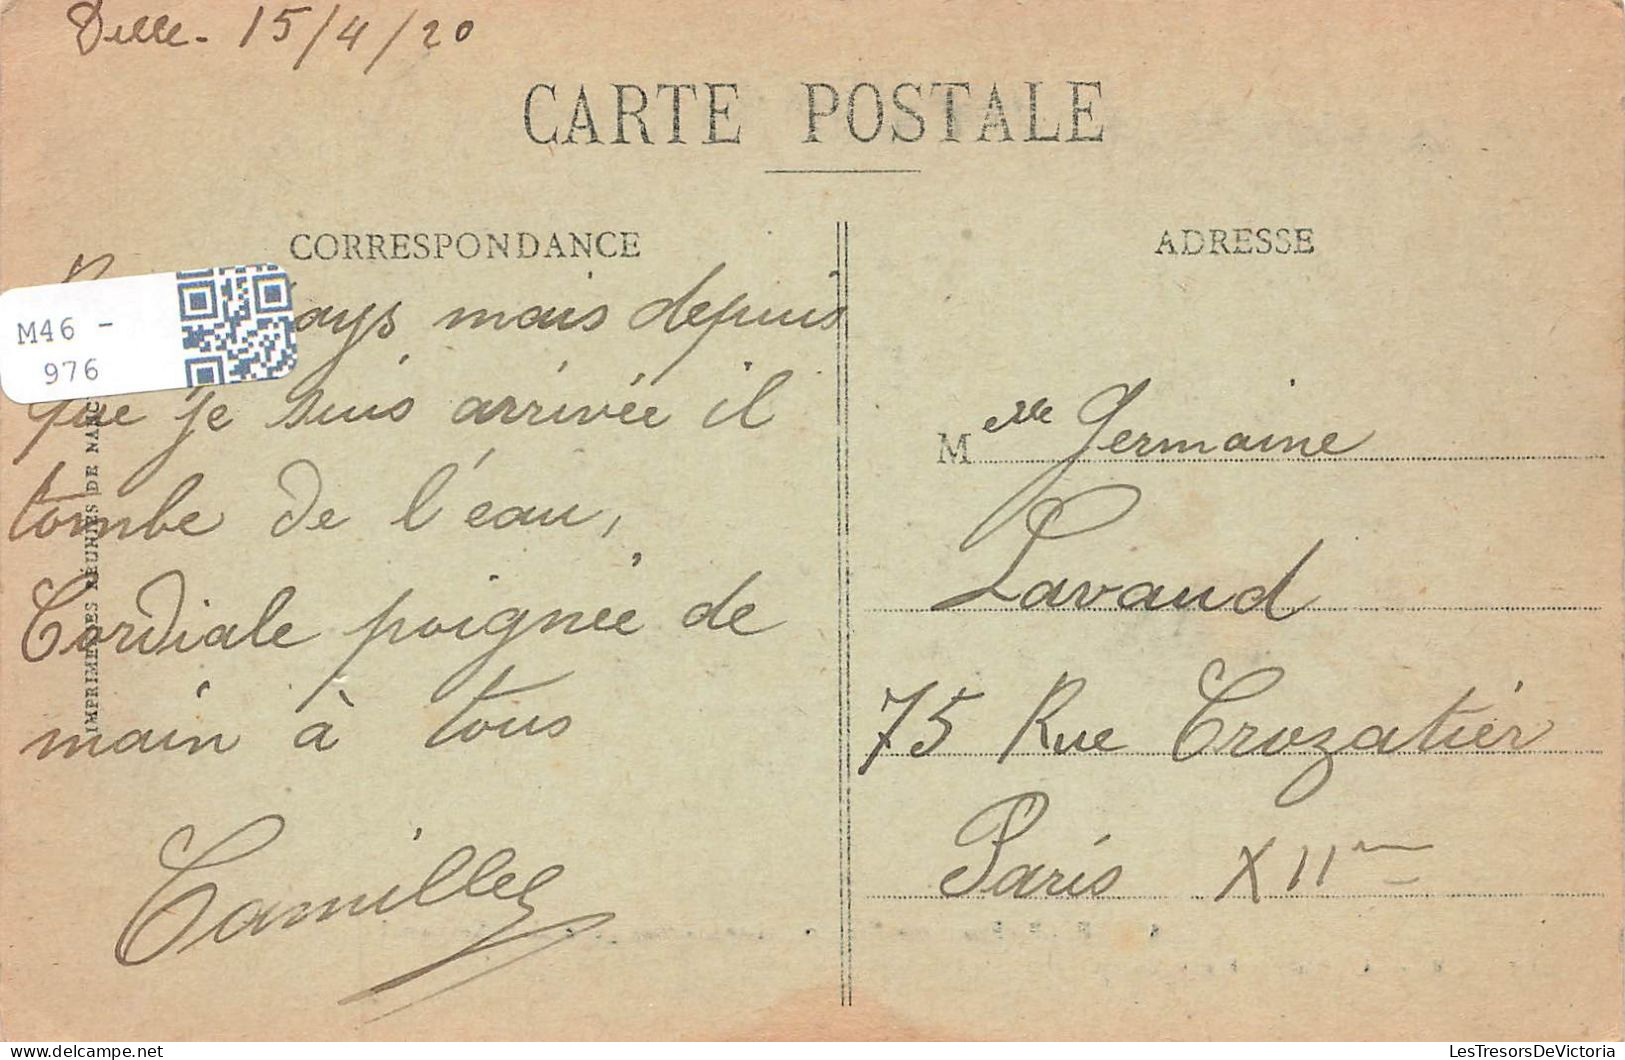 Delle - 15/4/20
CARTE POSTALE
CORRESPONDANCE
ADRESSE
M46 -
976
pays mais depuis
que je suis arrivée il
tombe de l'eau,
Cordiale poignée de
main à tous
Camille
IMPRIMERIES RÉUNIES DE NANC
Melle Germaine
Lavaud
75 Rue Crozatier
Paris XIIme
LesTresorsDeVictoria